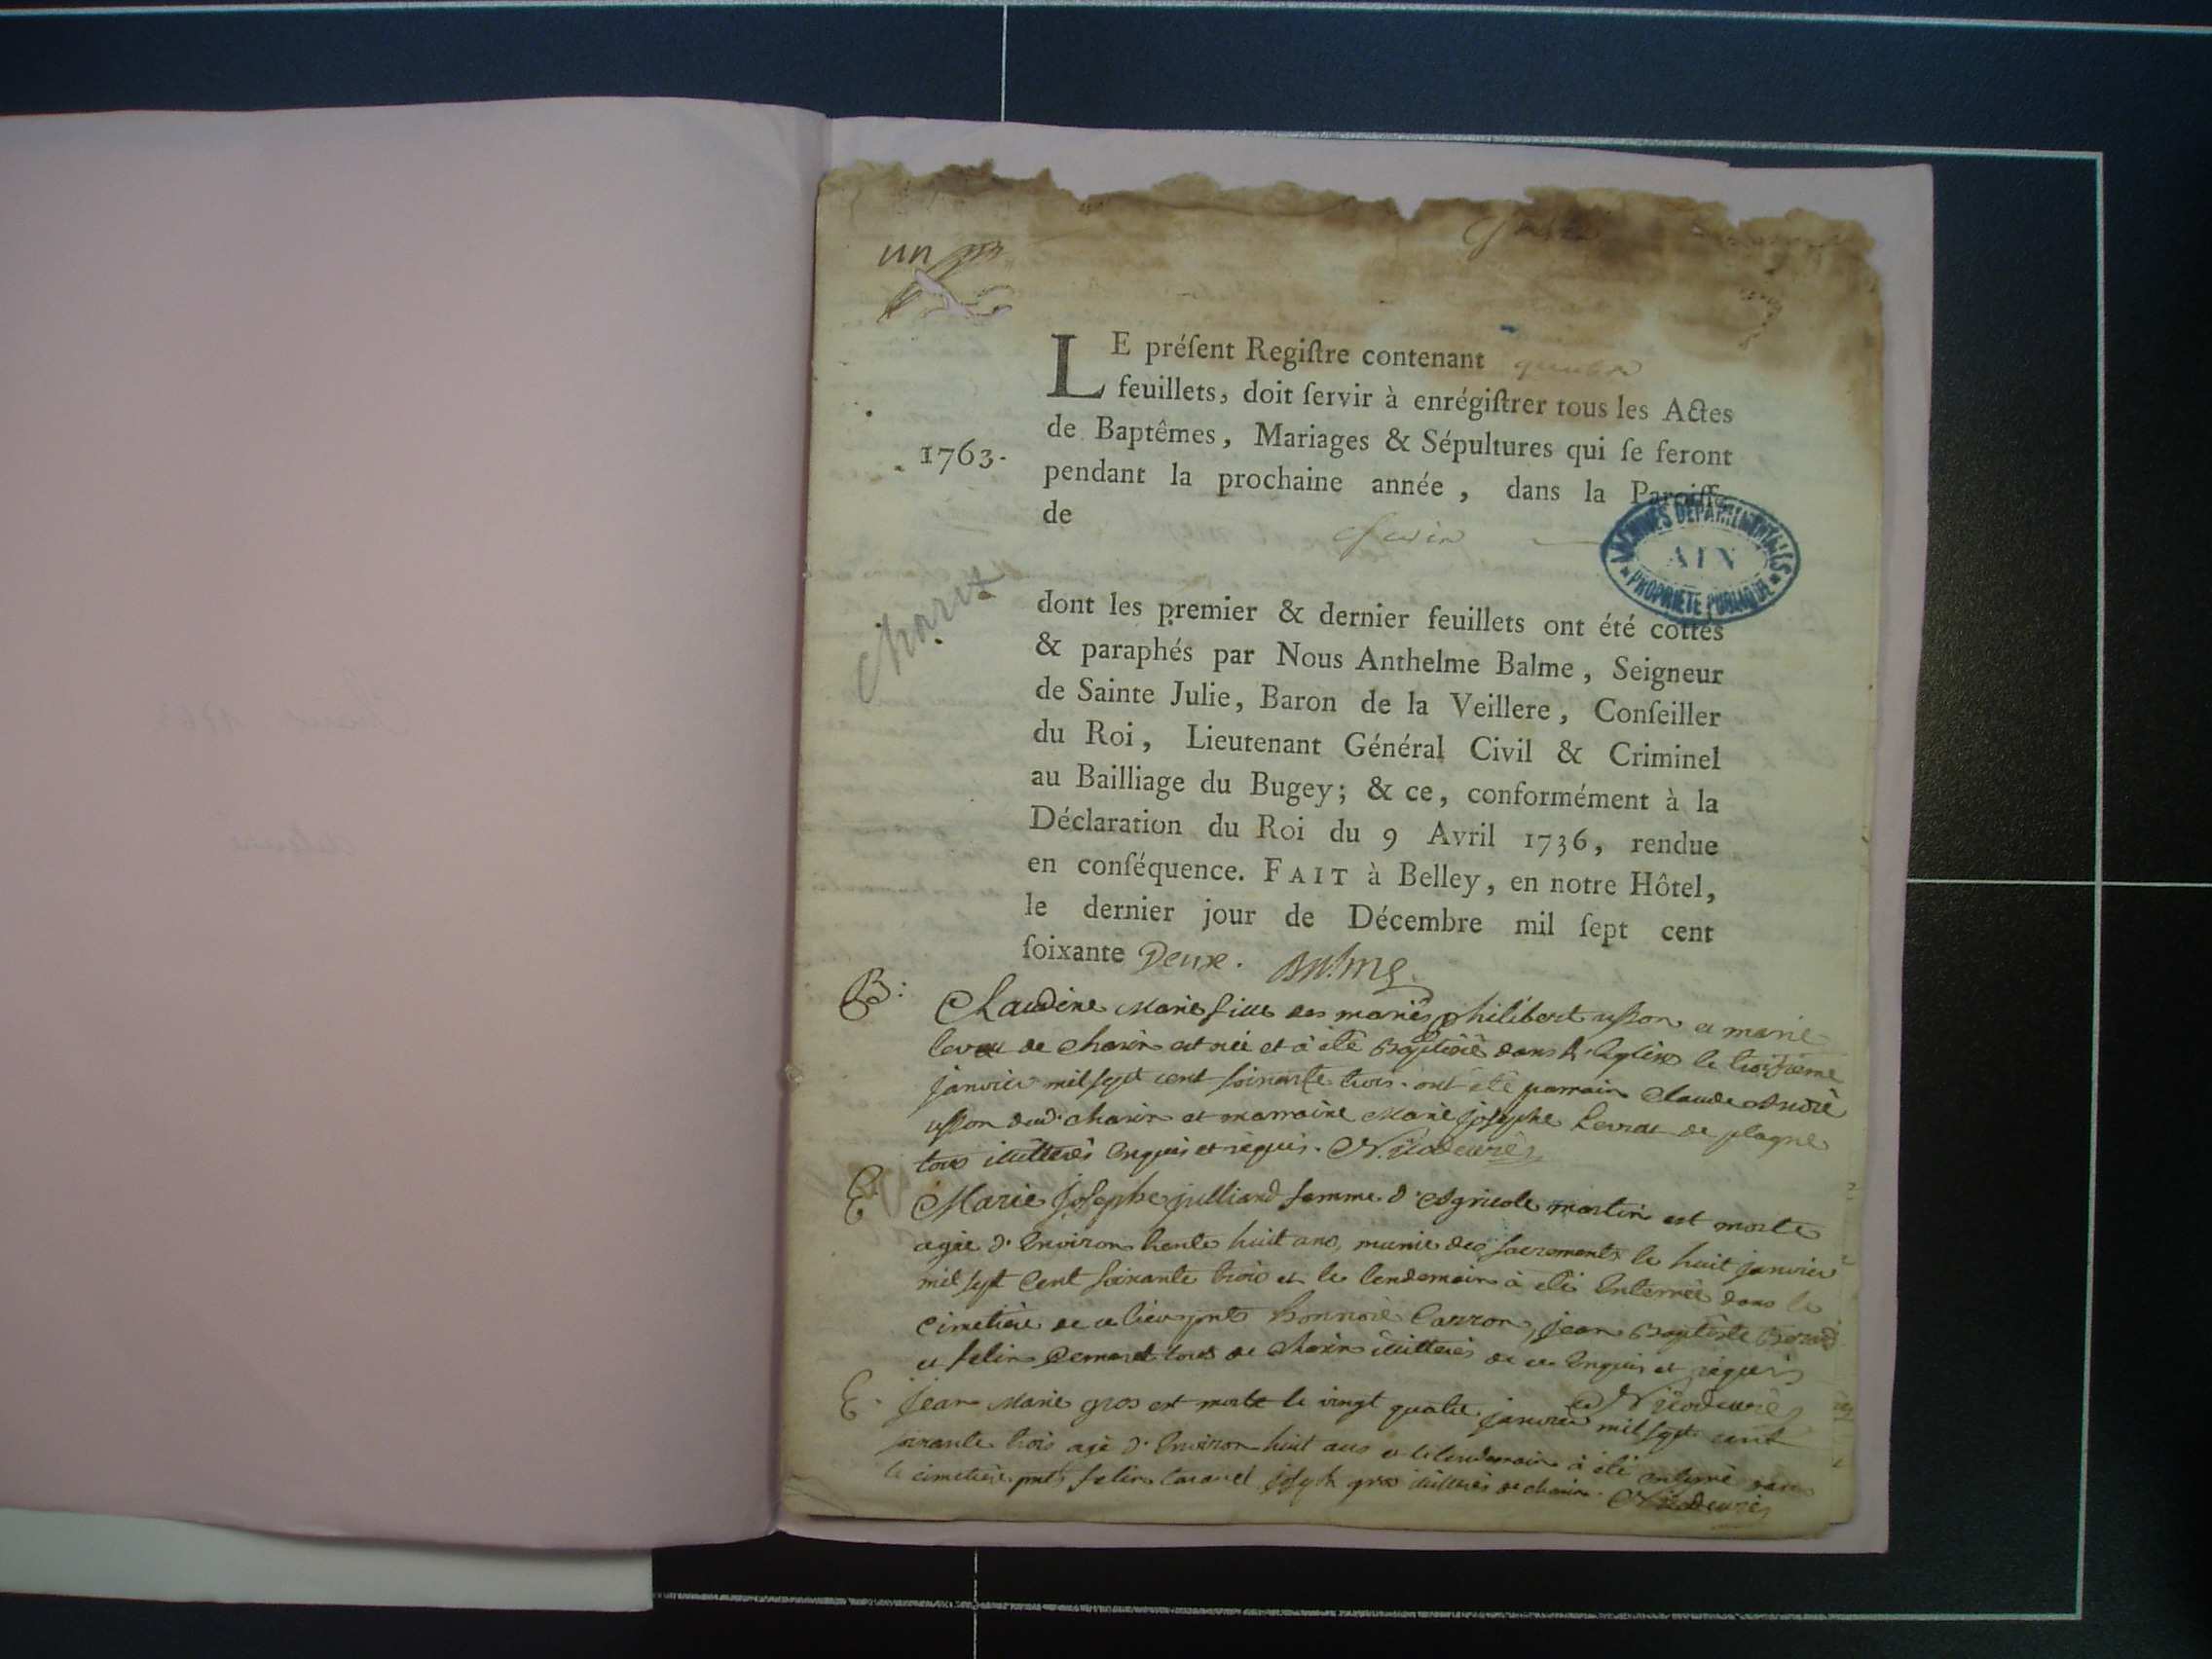 un
LE préſent Regiſtre contenant quatre
feuillets, doit ſervir à enrégiſtrer tous les Actes
de Baptêmes, Mariages & Sépultures qui ſe feront
1763.
pendant la prochaine année, dans la Paroiſſe
de
ARCHIVES DEPARTEMENTALES
AIN
PROPRIETE PUBLIQUE
dont les premier & dernier feuillets ont été cottés
& paraphés par Nous Anthelme Balme, Seigneur
de Sainte Julie, Baron de la Veillere, Conſeiller
du Roi, Lieutenant Général Civil & Criminel
au Bailliage du Bugey; & ce, conformément à la
Déclaration du Roi du 9 Avril 1736, rendue
en conſéquence. FAIT à Belley, en notre Hôtel,
le dernier jour de Décembre mil ſept cent
ſoixante Deux. Balme
B: Claudine Marie fille des mariés philibert usson et marie
levrat de charix est née et à été Baptisée dans l'Eglise le troisième
janvier mil sept cent soixante trois. ont été parrain Claude André
usson dud. charix et marraine Marie josephe Levrat de plagne
tous illitterés Enquis et requis.
E. Marie josephe julliard femme d'Agricole martin est morte
agée d'Environ trente huit ans, munie des sacrements le huit janvier
mil sept Cent soixante trois et le lendemain à été Enterrée dans le
Cimetière de ce lieu pnts Carron, jean Baptiste
et felix tous de charix illitterés de ce Enquis et requis
E. jean Marie gros est mort le vingt quatre janvier mil sept cent
soixante trois agé d'Environ huit ans et le lendemain à été enterré dans
le cimetière pnts felix joseph gros illitterés de charix.